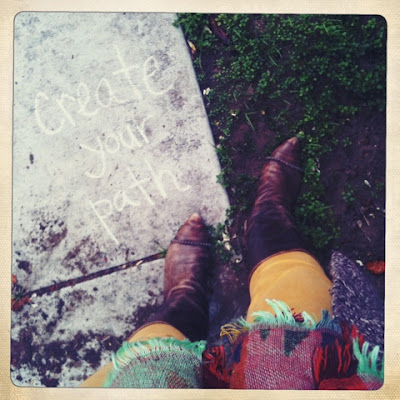 Create
your
path